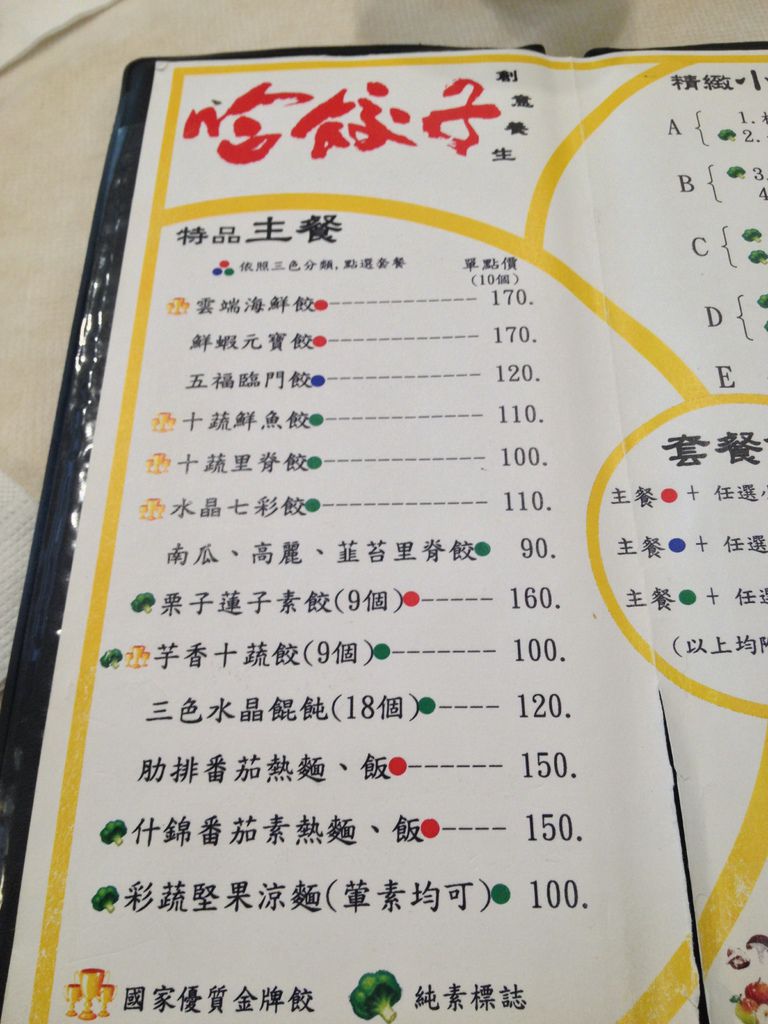 哈餃子
創意養生
特品主餐
依照三色分類,點選套餐 單點價
(10個)
雲端海鮮餃------------ 170.
鮮蝦元寶餃------------ 170.
五福臨門餃------------ 120.
十蔬鮮魚餃------------ 110.
十蔬里脊餃------------ 100.
水晶七彩餃------------ 110.
南瓜、高麗、韮苔里脊餃 90.
栗子蓮子素餃(9個)----- 160.
芋香十蔬餃(9個)------- 100.
三色水晶餛飩(18個)---- 120.
肋排番茄熱麵、飯------ 150.
什錦番茄素熱麵、飯---- 150.
彩蔬堅果涼麵(葷素均可) 100.
國家優質金牌餃 純素標誌
精緻小
A { 1.
2.
B { 3.
4
C {
D {
E
套餐
主餐 + 任選
主餐 + 任選
主餐 + 任
(以上均